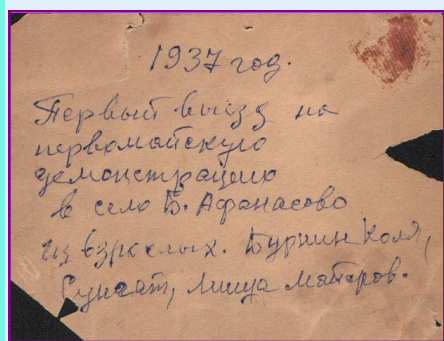 1937 год.
Первый выезд на
первомайскую
демонстрацию
в село Б. Афанасово
из взрослых. Бурнин Коля,
Миша Майоров.